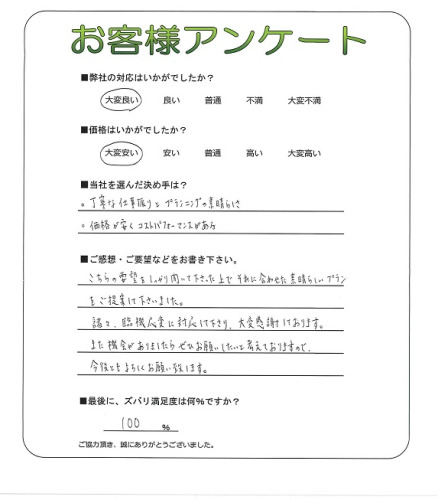 お客様アンケート
■弊社の対応はいかがでしたか?
大変良い 良い 普通 不満 大変不満
■価格はいかがでしたか?
大変安い 安い 普通 高い 大変高い
■当社を選んだ決め手は?
。丁寧な仕事振りとプランニングの素晴らしさ
。価格が安くコストパフォーマンスがある
■ご感想・ご要望などをお書き下さい。
こちらの要望をしっかり聞いて下さった上でそれに合わせた素晴らしいプラン
をご提案下さいました。
諸々、臨機応変に対応け下さり、大変感謝しております。
また機会がありましたらぜひお願いしたいと考えておりますので、
今後ともよろしくお願い致します。
■最後に、ズバリ満足度は何%ですか?
100 %
ご協力頂き、誠にありがとうございました。